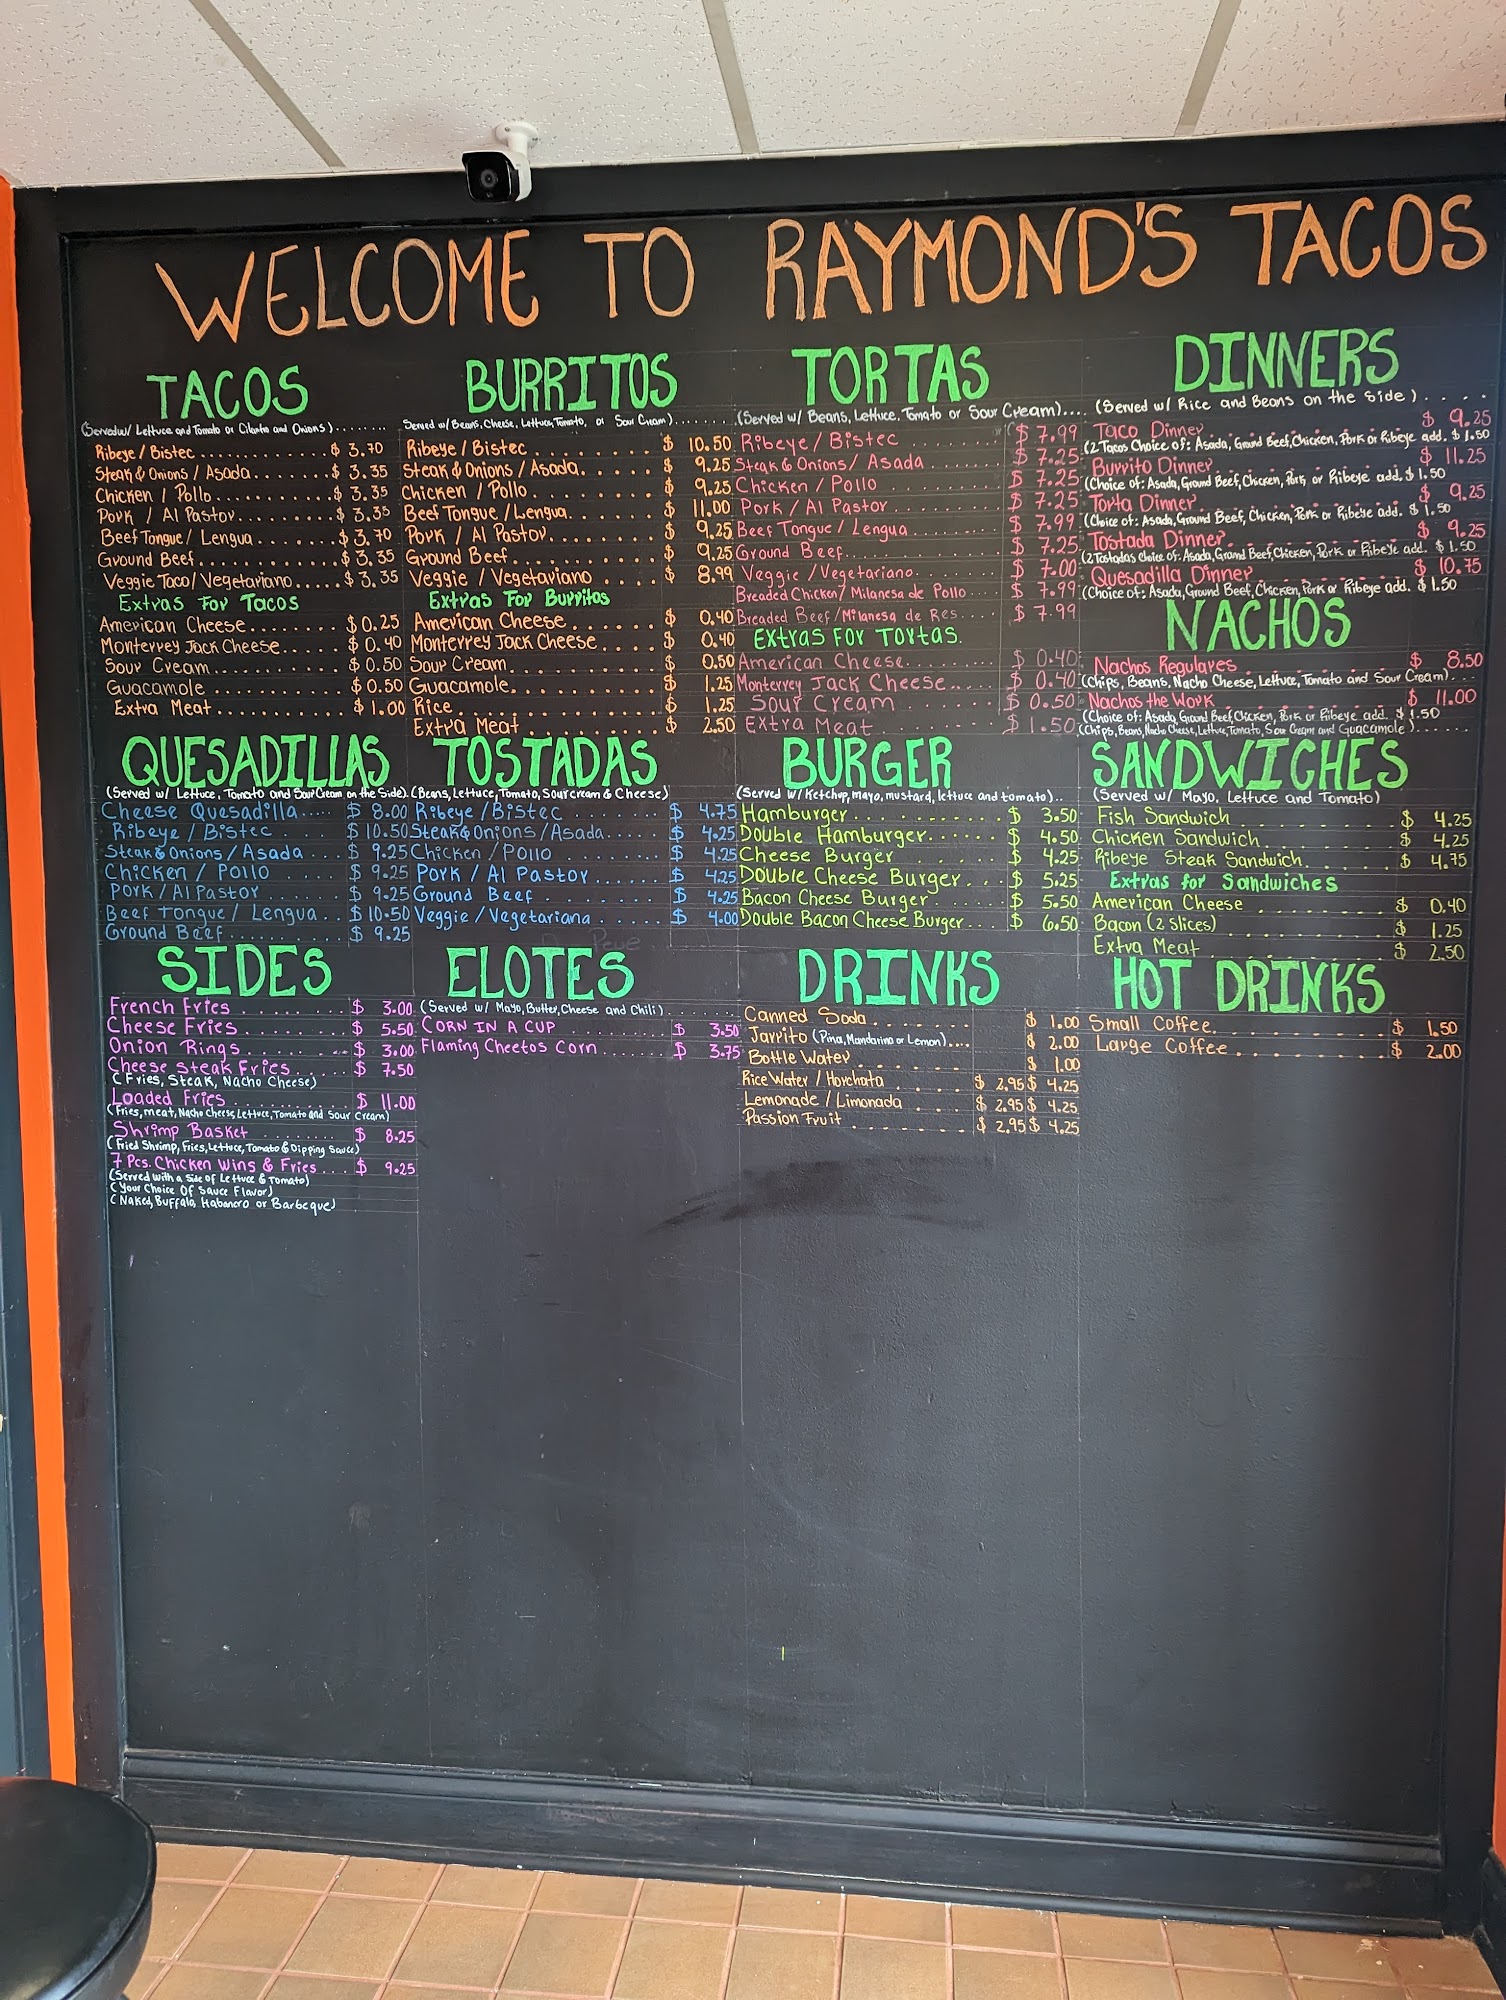 WELCOME TO RAYMOND'S TACOS
TACOS
(Served w/ Lettuce and Tomato or Cilanto and Onions)........
Ribeye / Bistec ................ $ 3.70
Steak & Onions / Asada ........ $ 3.35
Chicken / Pollo ............. $ 3.35
Pork / Al Pastor .......... $ 3.35
Beef Tongue / Lengua ........ $ 3.70
Ground Beef .............. $ 3.35
Veggie Taco / Vegetariano ..... $ 3.35
Extras For Tacos
American Cheese .......... $ 0.25
Monterrey Jack Cheese ..... $ 0.40
Sour Cream .............. $ 0.50
Guacamole ............ $ 0.50
Extra Meat .......... $ 1.00
BURRITOS
Served w/ Beans, Cheese, Lettuce, Tomato, or Sour Cream).......
Ribeye / Bistec ........ $ 10.50
Steak & Onions / Asada ..... $ 9.25
Chicken / Pollo ........ $ 9.25
Beef Tongue / Lengua ...... $ 11.00
Pork / Al Pastor ....... $ 9.25
Ground Beef .......... $ 9.25
Veggie / Vegetariano ..... $ 8.99
Extras For Burritos
American Cheese ....... $ 0.40
Monterrey Jack Cheese ..... $ 0.40
Sour Cream .......... $ 0.50
Guacamole .......... $ 1.25
Rice ............. $ 1.25
Extra Meat ........ $ 2.50
TORTAS
(Served w/ Beans, Lettuce, Tomato or Sour Cream)....
Ribeye / Bistec ........ $ 7.99
Steak & Onions / Asada ....... $ 7.25
Chicken / Pollo ........ $ 7.25
Pork / Al Pastor ........ $ 7.25
Beef Tongue / Lengua ....... $ 7.99
Ground Beef ......... $ 7.25
Veggie / Vegetariano ....... $ 7.00
Breaded Chicken / Milanesa de Pollo ... $ 7.99
Breaded Beef / Milanesa de Res .... $ 7.99
Extras For Tortas.
American Cheese ........ $ 0.40
Monterrey Jack Cheese .... $ 0.40
Sour Cream ....... $ 0.50
Extra Meat ....... $ 1.50
DINNERS
(Served w/ Rice and Beans on the Side) . . . .
Taco Dinner $ 9.25
(2 Tacos Choice of: Asada, Ground Beef, Chicken, Pork or Ribeye add. $ 1.50
Burrito Dinner $ 11.25
(Choice of: Asada, Ground Beef, Chicken, Pork or Ribeye add. $ 1.50
Torta Dinner $ 9.25
(Choice of: Asada, Ground Beef, Chicken, Pork or Ribeye add. $ 1.50
Tostada Dinner $ 9.25
(2 Tostadas Choice of: Asada, Ground Beef, Chicken, Pork or Ribeye add. $ 1.50
Quesadilla Dinner $ 10.75
(Choice of: Asada, Ground Beef, Chicken, Pork or Ribeye add. $ 1.50
NACHOS
Nachos Regulares $ 8.50
(Chips, Beans, Nacho Cheese, Lettuce, Tomato and Sour Cream)....
Nachos the Work $ 11.00
(Choice of: Asada, Ground Beef, Chicken, Pork or Ribeye add. $ 1.50
(Chips, Beans, Nacho Cheese, Lettuce, Tomato, Sour Cream and Guacamole)......
QUESADILLAS
(Served w/ Lettuce, Tomato and Sour Cream on the Side).
Cheese Quesadilla ..... $ 8.00
Ribeye / Bistec ..... $ 10.50
Steak & Onions / Asada ... $ 9.25
Chicken / Pollo ..... $ 9.25
Pork / Al Pastor ..... $ 9.25
Beef Tongue / Lengua .. $ 10.50
Ground Beef ........ $ 9.25
TOSTADAS
(Beans, Lettuce, Tomato, Sour cream & Cheese)
Ribeye / Bistec ....... $ 4.75
Steak & Onions / Asada ..... $ 4.25
Chicken / Pollo ....... $ 4.25
Pork / Al Pastor ...... $ 4.25
Ground Beef ....... $ 4.25
Veggie / Vegetariana ..... $ 4.00
BURGER
(Served w/ Ketchup, mayo, mustard, lettuce and tomato)..
Hamburger ......... $ 3.50
Double Hamburger ...... $ 4.50
Cheese Burger ....... $ 4.25
Double Cheese Burger ... $ 5.25
Bacon Cheese Burger .... $ 5.50
Double Bacon Cheese Burger ... $ 6.50
SANDWICHES
(Served w/ Mayo, Lettuce and Tomato)
Fish Sandwich ......... $ 4.25
Chicken Sandwich ....... $ 4.25
Ribeye Steak Sandwich ..... $ 4.75
Extras for Sandwiches
American Cheese ........ $ 0.40
Bacon (2 Slices) ........ $ 1.25
Extra Meat ......... $ 2.50
SIDES
French Fries ....... $ 3.00
Cheese Fries ....... $ 5.50
Onion Rings ....... $ 3.00
Cheese Steak Fries .... $ 7.50
(Fries, Steak, Nacho Cheese)
Loaded Fries ....... $ 11.00
(Fries, meat, Nacho Cheese, Lettuce, Tomato and Sour Cream)
Shrimp Basket ....... $ 8.25
(Fried Shrimp, Fries, Lettuce, Tomato & Dipping Sauce)
7 Pcs. Chicken Wins & Fries ... $ 9.25
(Served with a Side of Lettuce & Tomato)
(Your Choice Of Sauce Flavor)
(Naked, Buffalo, Habanero or Barbeque)
ELOTES
(Served w/ Mayo, Butter, Cheese and Chili)
CORN IN A CUP $ 3.50
Flaming Cheetos Corn ...... $ 3.75
DRINKS
Canned Soda ....... $ 1.00
Jarrito (Pina, Mandarina or Lemon).... $ 2.00
Bottle Water ....... $ 1.00
Rice Water / Horchata .... $ 2.95 $ 4.25
Lemonade / Limonada ... $ 2.95 $ 4.25
Passion Fruit ....... $ 2.95 $ 4.25
HOT DRINKS
Small Coffee ......... $ 1.50
Large Coffee ......... $ 2.00